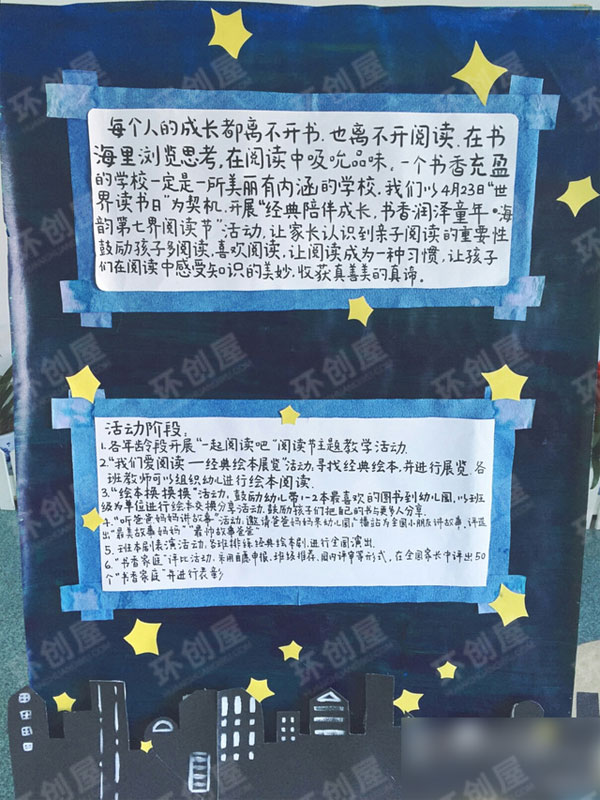 每个人的成长都离不开书.也离不开阅读.在书
海里浏览思考,在阅读中吸吮品味.一个书香充盈
的学校一定是一所美丽有内涵的学校.我们以4月23日“世
界读书日”为契机.开展“经典陪伴成长,书香润泽童年·海
韵第七界阅读节”活动,让家长认识到亲子阅读的重要性
鼓励孩子多阅读.喜欢阅读.让阅读成为一种习惯,让孩子
们在阅读中感受知识的美妙.收获真善美的真谛.
活动阶段:
1.各年龄段开展“一起阅读吧”阅读节主题教学活动.
2.“我们爱阅读——经典绘本展览”活动,寻找经典绘本,并进行展览.各
班教师可以组织幼儿进行绘本阅读.
3.“绘本换换换”活动,鼓励幼儿带1-2本最喜欢的图书到幼儿园,以班
级为单位进行绘本交换分享活动,鼓励孩子们把自己的书与更多人分享.
4.“听爸爸妈妈讲故事”活动.邀请爸爸妈妈来幼儿园广播站为全园小朋友讲故事,评选
出“最美故事妈妈”“最帅故事爸爸”
5.班本剧表演活动.各班排练经典绘本剧.进行全园演出.
6.“书香家庭”评比活动.采用自愿申报.班级推荐.园内评审等形式,在全园家长中评出50
个“书香家庭”并进行表彰
环创屋